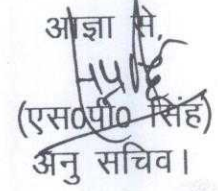 आज्ञा से,
(एस0पी0 सिंह)
अनु सचिव।